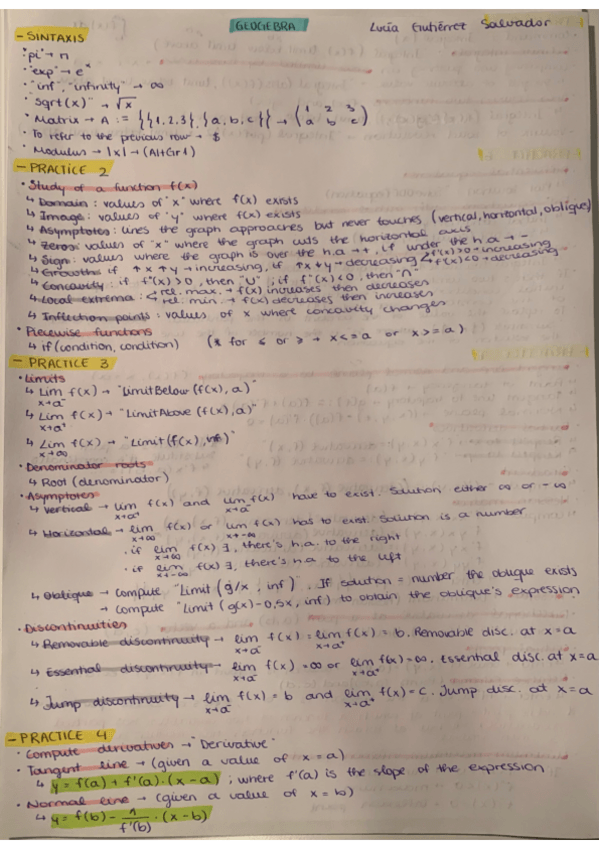 GEOGEBRA
Lucía Gutiérrez Salvador
- SINTAXIS
· "pi" → π
· "exp" → e^
· "inf", "infinity" → ∞
· "sqrt(x)" → √x
· Matrix → A := {{1,2,3},{a,b,c}} → (1 2 3 / a b c)
· To refer to the previous row → $
· Modulus → |x| → (Alt Gr 1)
- PRACTICE 2
· Study of a function f(x)
↳ Domain: values of "x" where f(x) exists
↳ Image: values of "y" where f(x) exists
↳ Asymptotes: lines the graph approaches but never touches (vertical, horizontal, oblique)
↳ Zeros: values of "x" where the graph cuts the horizontal axis
↳ Sign: values where the graph is over the h.a → +, if under the h.a → -
↳ Growth: if ↑x ↑y → increasing, if ↑x ↓y → decreasing f'(x)>0 → increasing
f'(x)<0 → decreasing
↳ Concavity: if f''(x) > 0, then "∪"; if f''(x) < 0, then "∩"
↳ Local extrema: rel. max. → f(x) increases then decreases
rel. min. → f(x) decreases then increases
↳ Inflection points: values of x where concavity changes
· Piecewise functions
↳ if (condition, condition) (* for ≤ or ≥ → x <= a or x >= a)
- PRACTICE 3
· Limits
↳ Lim x→a⁻ f(x) → "LimitBelow (f(x), a)"
↳ Lim x→a⁺ f(x) → "LimitAbove (f(x), a)"
↳ Lim x→∞ f(x) → "Limit (f(x), inf)"
· Denominator roots
↳ Root (denominator)
· Asymptotes
↳ Vertical → lim x→a⁺ f(x) and lim x→a⁻ f(x) have to exist. Solution either ∞ or -∞
↳ Horizontal → lim x→∞ f(x) or lim x→-∞ f(x) has to exist. Solution is a number
· if lim x→∞ f(x) ∃, there's h.a. to the right
· if lim x→-∞ f(x) ∃, there's h.a to the left
↳ Oblique → Compute "Limit (g/x, inf)". If solution = number the oblique exists
→ Compute "Limit (g(x)-0,5x, inf) to obtain the oblique's expression
· Discontinuities
↳ Removable discontinuity → lim x→a⁻ f(x) = lim x→a⁺ f(x) = b. Removable disc. at x=a
↳ Essential discontinuity → lim x→a⁻ f(x) = ∞ or lim x→a⁺ f(x) = ∞. Essential disc. at x=a
↳ Jump discontinuity → lim x→a⁻ f(x) = b and lim x→a⁺ f(x) = c. Jump disc. at x=a
- PRACTICE 4
· Compute derivatives → "Derivative"
· Tangent line → (given a value of x=a)
↳ y = f(a) + f'(a)·(x-a); where f'(a) is the slope of the expression
· Normal line → (given a value of x=b)
↳ y = f(b) - 1/f'(b) · (x-b)